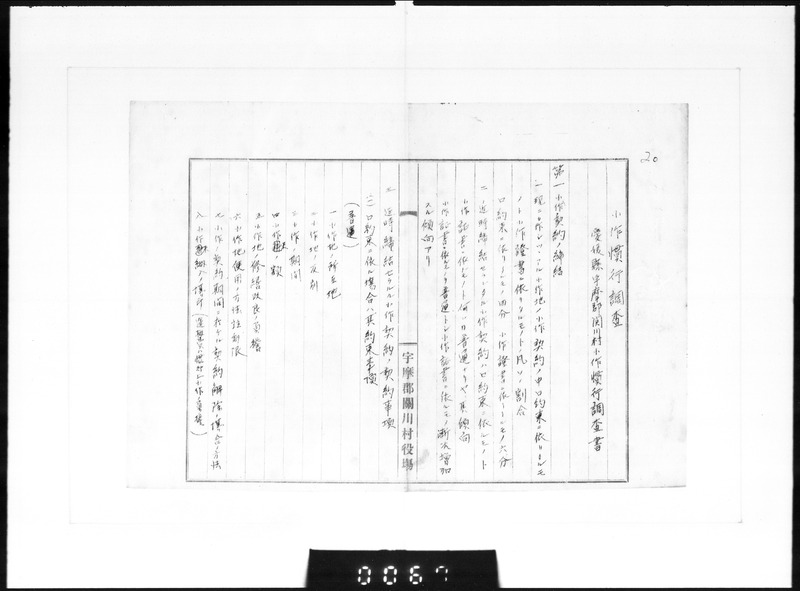 20
小作慣行調査
愛媛縣宇摩郡関川村小作慣行調査書
第一 小作契約ノ締結
一 現ニ行ハレツヽアル小作地ノ小作契約ノ中口約束ニ依リタルモ
ノト小作證書ニ依リタルモノト凡ソノ割合
口約束ニ依リタルモノ四分 小作證書ニ依リタルモノ六分
二 近時締結セラルル小作契約ハ口約束ニ依ルモノト
小作証書ニ依ルモノト何レカ普通ナリヤ其傾向
小作証書ニ依ルモノ普通トシ小作証書ニ依ルモノ漸次増加
スル傾向アリ
三 近時締結セラルル小作契約ノ契約事項
(一) 口約束ニ依ル場合ハ其約束事項
(普通)
一 小作地ノ所在地
二 小作地ノ反別
三 小作期間
四 小作料ノ額
五 小作地ノ修繕改良ノ負擔
六 小作地使用ノ方法註制限
七 小作契約期間ニ於ケル契約解除ノ場合ノ方法
八 小作料納入ノ場所
宇摩郡關川村役場
0067